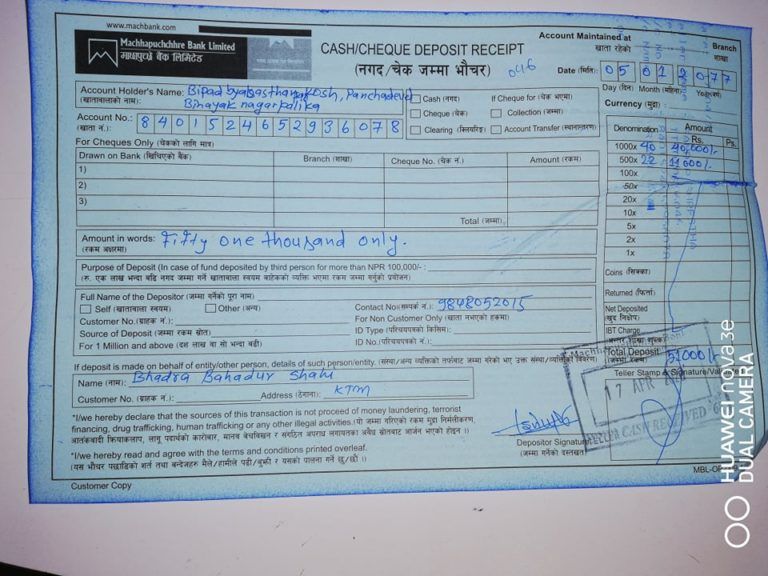 www.machbank.com
Machhapuchchhre Bank Limited
माछापुच्छ्रे बैंक लिमिटेड
CASH/CHEQUE DEPOSIT RECEIPT
(नगद/चेक जम्मा भौचर)
046
Account Maintained at
खाता रहेको
Branch
शाखा
Date (मिति): 05 01 2077
Day (दिन) Month (महिना)
Account Holder's Name: Bipad byabasthan kosh, Panchadeval
(खातावालाको नाम): Binayak nagarpalika
Account No.: 8401524652936078
(खाता नं.)
Cash (नगद) If Cheque for (चेक भएमा)
Cheque (चेक) Collection (जम्मा)
Clearing (क्लियरिङ) Account Transfer (स्थानान्तरण)
Currency (मुद्रा):
Denomination Amount
Rs. Ps.
1000x 40 40,000/-
500x 22 11000/-
100x
50x
20x
10x
5x
2x
1x
Coins (सिक्का)
Returned (फिर्ता)
Net Deposited
(खुद निक्षेप)
IBT Charge
Total Deposit 51000/-
(जम्मा रकम)
For Cheques Only (चेकको लागि मात्र)
Drawn on Bank (खिचिएको बैंक) Branch (शाखा) Cheque No. (चेक नं.) Amount (रकम)
1)
2)
3)
Total (जम्मा)
Amount in words: Fifty one thousand only.
(रकम अक्षरमा)
Purpose of Deposit (In case of fund deposited by third person for more than NPR 100,000/- :
(रु. एक लाख भन्दा बढि नगद जम्मा गर्ने खातावाला स्वयम बाहेकको व्यक्ति भएमा रकम जम्मा गर्नुको प्रयोजन)
Full Name of the Depositor (जम्मा गर्नेको पुरा नाम)
Self (खातावाला स्वयम) Other (अन्य)
Contact No(सम्पर्क नं.): 9848052015
Customer No.(ग्राहक नं.):
For Non Customer Only (खाता नभएको हकमा)
Source of Deposit (जम्मा रकम स्रोत)
ID Type (परिचयपत्रको किसिम):
For 1 Million and above (दश लाख वा सो भन्दा बढी)
ID No.(परिचयपत्रको नं.):
If deposit is made on behalf of entity/other person, details of such person/entity. (संस्था/अन्य व्यक्तिको तर्फबाट जम्मा गरेको भए उक्त संस्था/व्यक्तिको विवरण)
Name (नाम): Bhadra Bahadur Shahi
Customer No. (ग्राहक नं.): Address (ठेगाना): KTM
Teller Stamp & Signature/Validate
17 APR
TELLER CASH RECEIVED
*I/we hereby declare that the sources of this transaction is not proceed of money laundering, terrorist
financing, drug trafficking, human trafficking or any illegal activities.(यो जम्मा गरिएको रकम मुद्रा निर्मलीकरण,
आतंकवादी क्रियाकलाप, लागु पदार्थको कारोबार, मानव बेचविखन र संगठित अपराध लगायतका अवैध स्रोतबाट आर्जन भएको होइन ।)
*I/we hereby read and agree with the terms and conditions printed overleaf.
(यस भौचर पछाडिको शर्त तथा बन्देजहरु मैले/हामीले पढी/बुझी र यसको पालना गर्ने छु/छौं ।)
Depositor Signature
(जम्मा गर्नेको दस्तखत)
Customer Copy
HUAWEI nova 3e
DUAL CAMERA